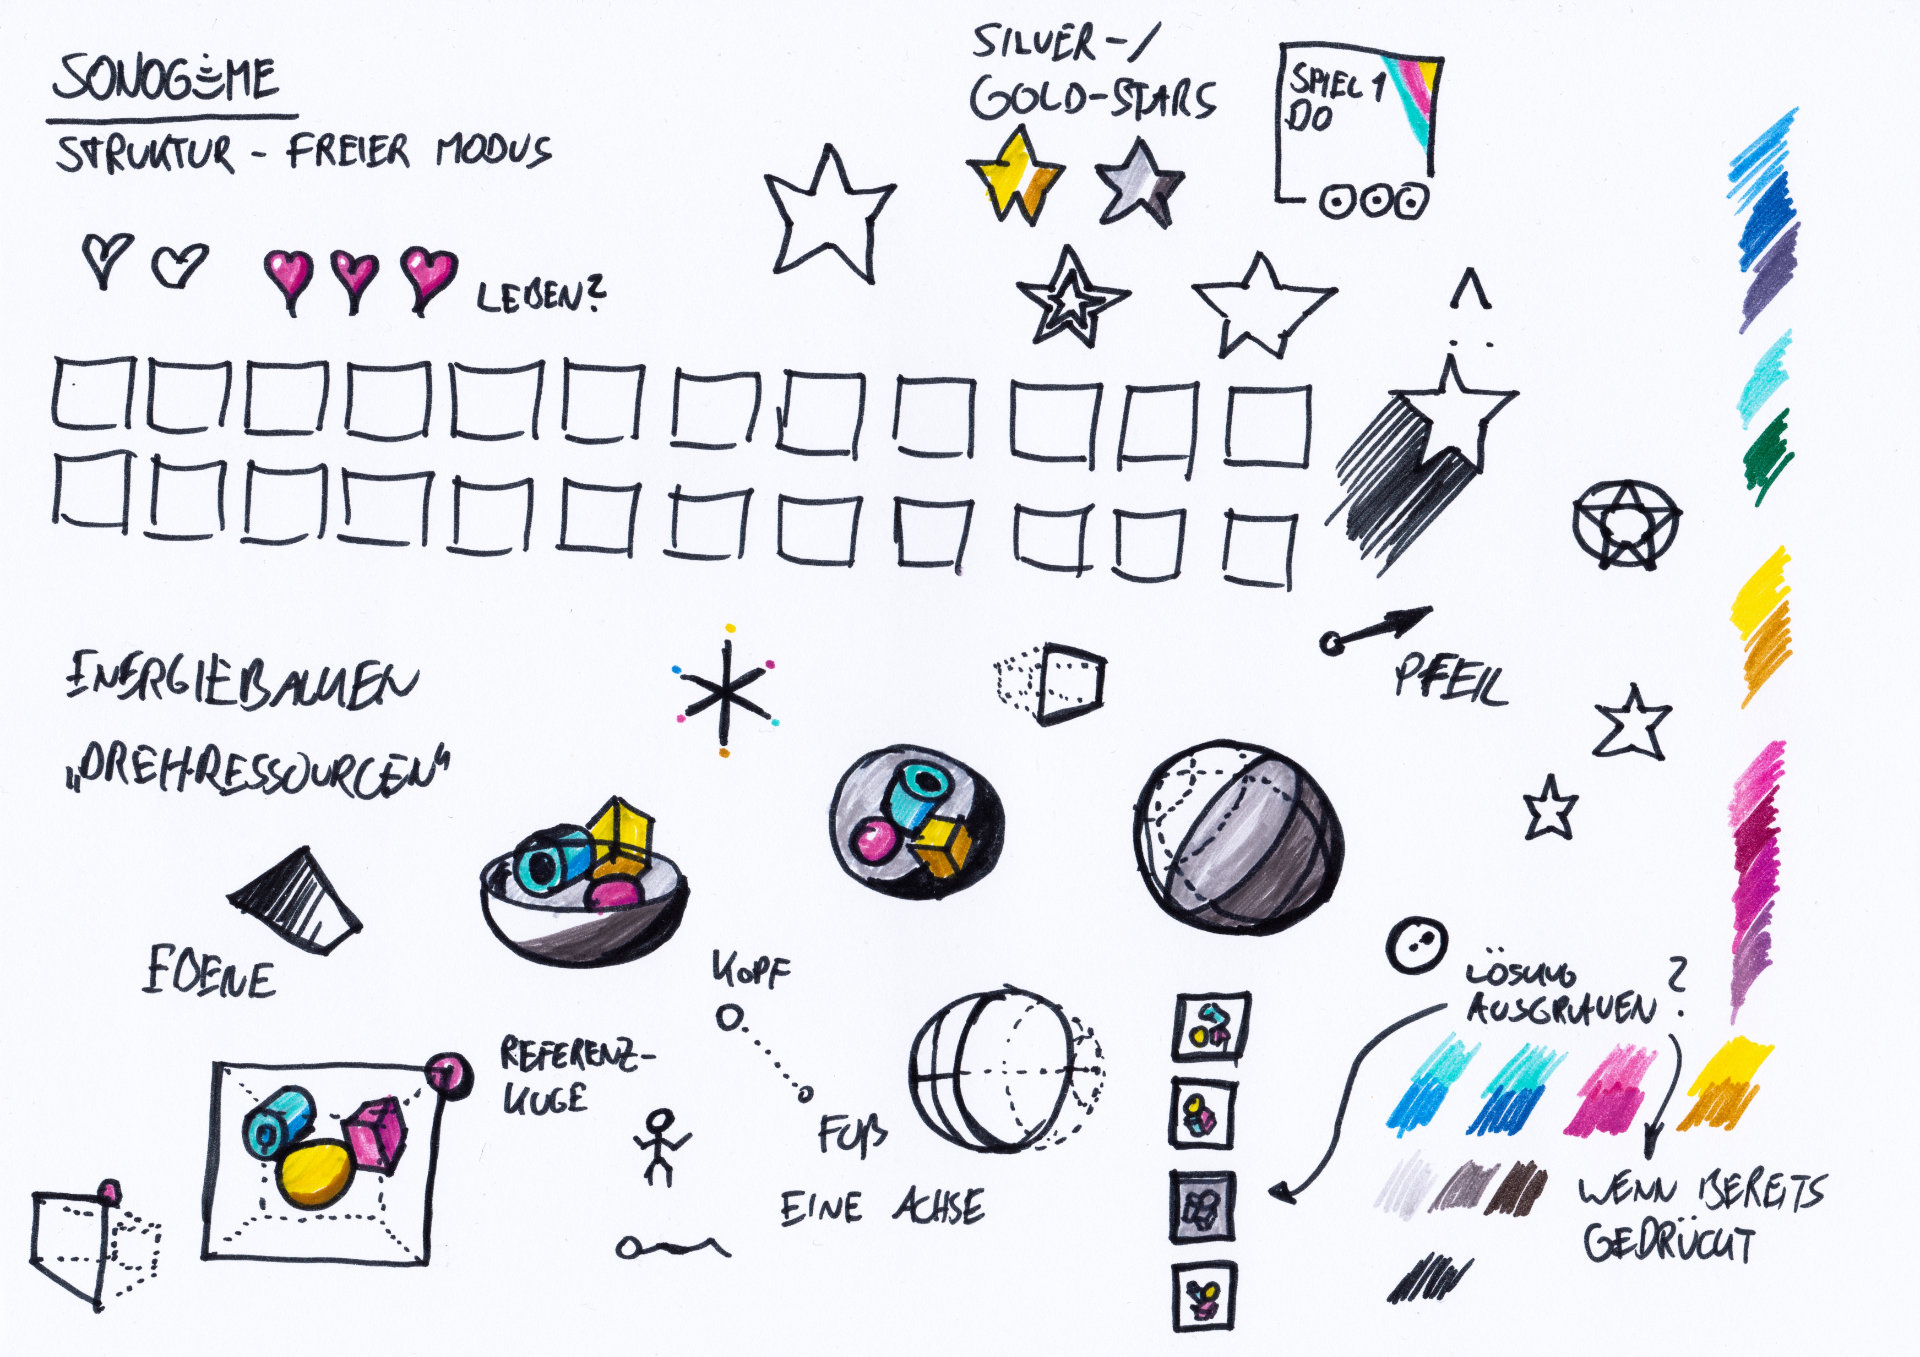 SONOGAME
STRUKTUR - FREIER MODUS
SILVER-/
GOLD-STARS
SPIEL 1
DO
LEBEN?
ENERGIEBALKEN
„DREHRESSOURCEN“
PFEIL
EBENE
KOPF
REFERENZ-
KUGE
FUß
EINE ACHSE
LÖSUNG
AUSGRAUEN?
WENN BEREITS
GEDRÜCKT